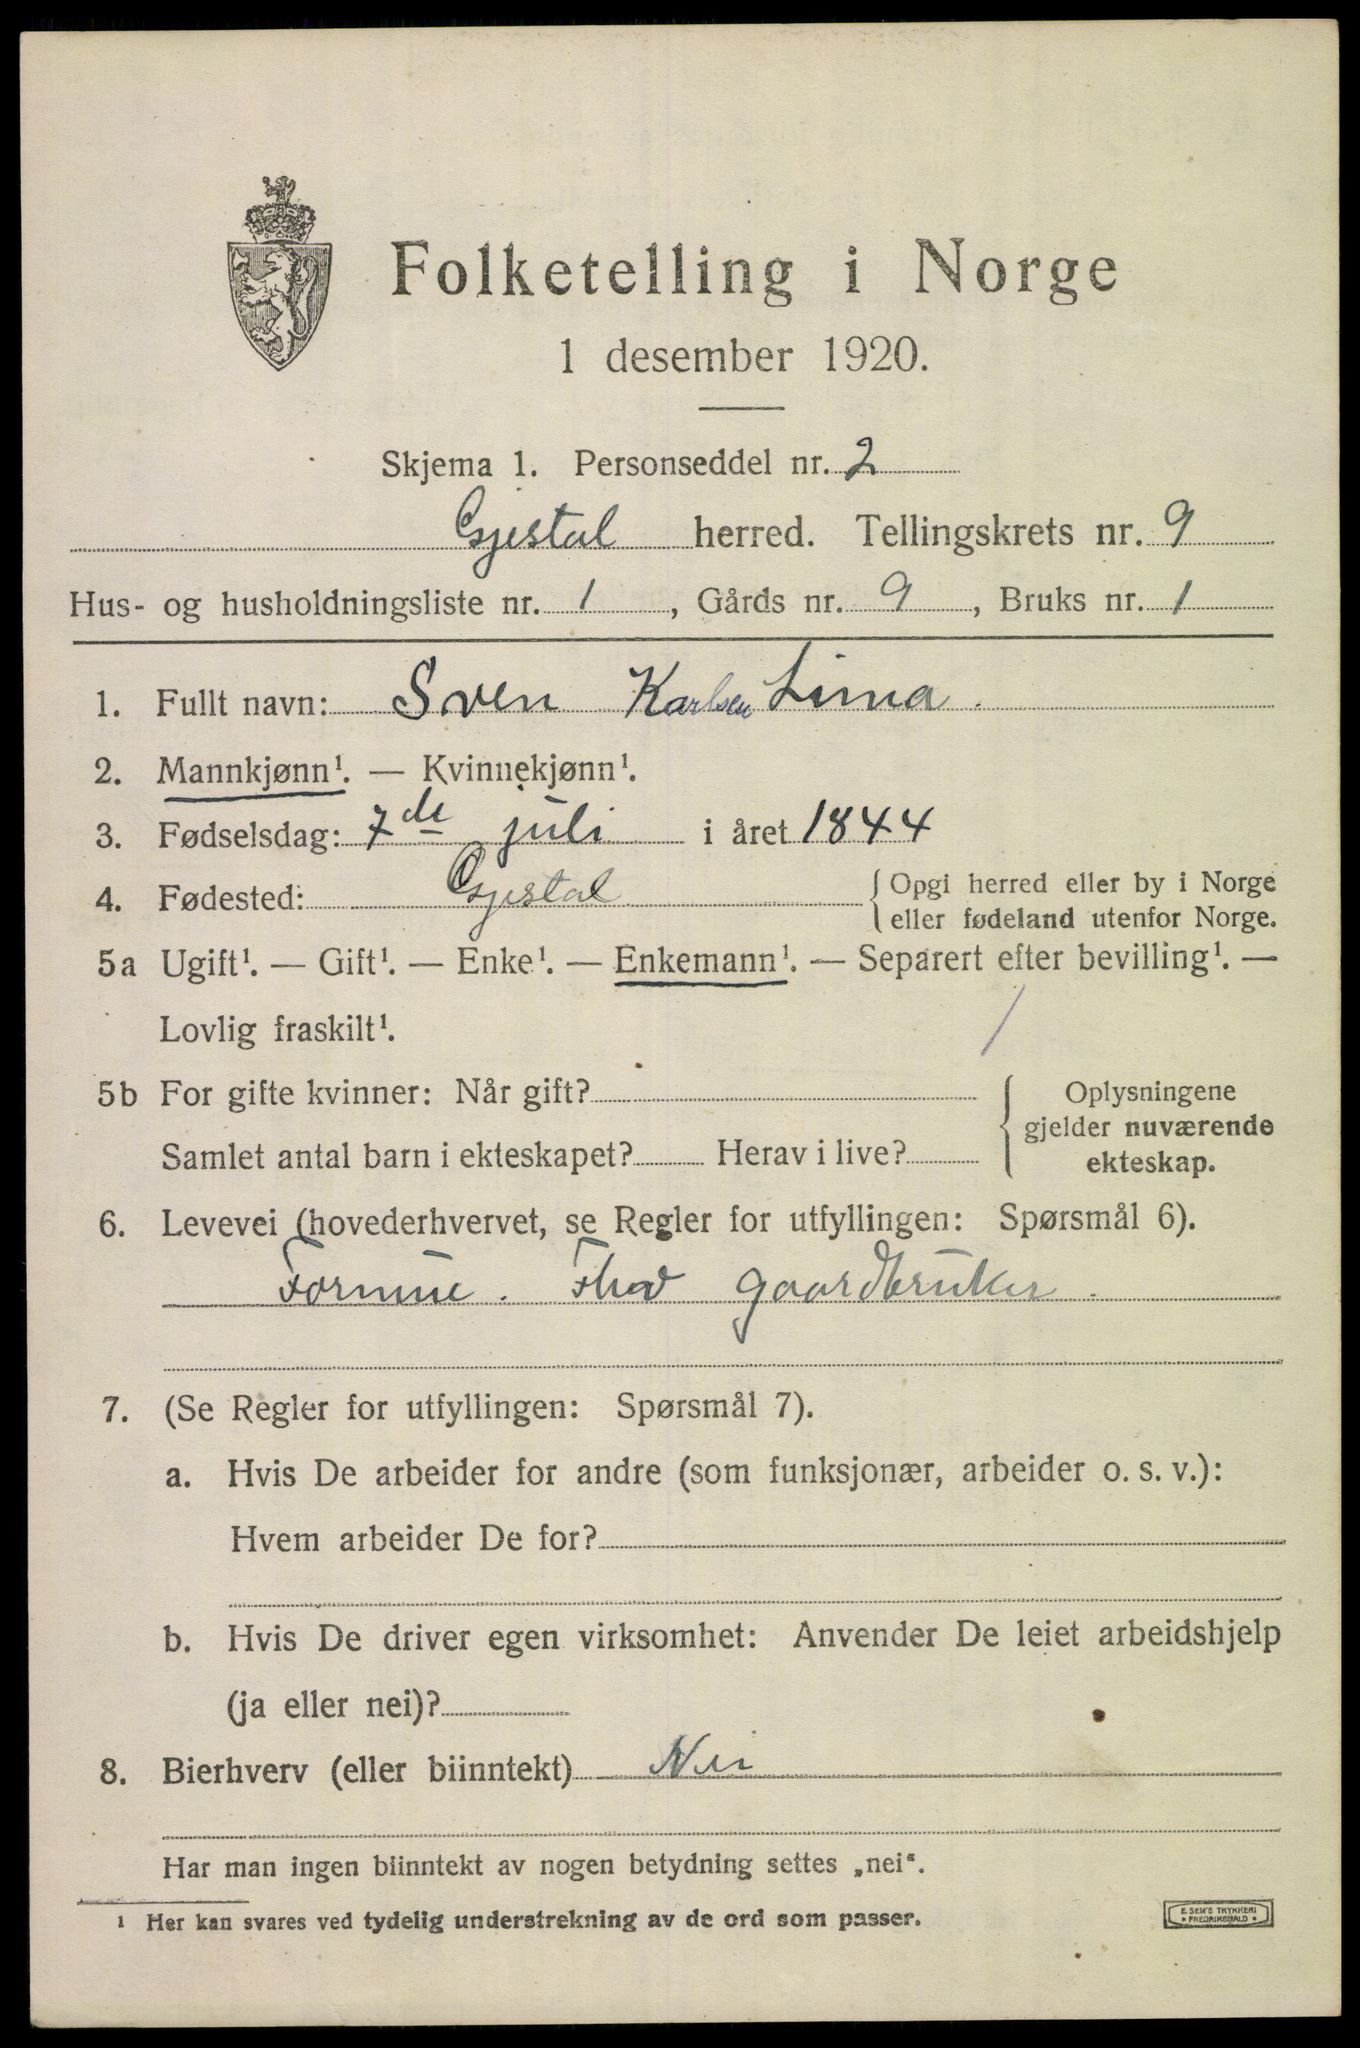 Folketelling i Norge
1 desember 1920.
Skjema 1. Personseddel nr. 2
Gjestal herred. Tellingskrets nr. 9
Hus- og husholdningsliste nr. 1, Gårds nr. 9, Bruks nr. 1
1. Fullt navn: Sven Karlsen Lima.
2. Mannkjønn¹. — Kvinnekjønn¹.
3. Fødselsdag: 7de juli i året 1844
4. Fødested: Gjestal { Opgi herred eller by i Norge
eller fødeland utenfor Norge.
5a Ugift¹. — Gift¹. — Enke¹. — Enkemann¹. — Separert efter bevilling¹. —
Lovlig fraskilt¹.
5b For gifte kvinner: Når gift? { Oplysningene
gjelder nuværende
Samlet antal barn i ekteskapet? Herav i live? ekteskap.
6. Levevei (hovederhvervet, se Regler for utfyllingen: Spørsmål 6).
Formue. Fhv gaardbruker.
7. (Se Regler for utfyllingen: Spørsmål 7).
a. Hvis De arbeider for andre (som funksjonær, arbeider o. s. v.):
Hvem arbeider De for?
b. Hvis De driver egen virksomhet: Anvender De leiet arbeidshjelp
(ja eller nei)?
8. Bierhverv (eller biinntekt) Nei
Har man ingen biinntekt av nogen betydning settes „nei“.
¹ Her kan svares ved tydelig understrekning av de ord som passer.
E. SEM'S TRYKKERI
FREDRIKSHALD